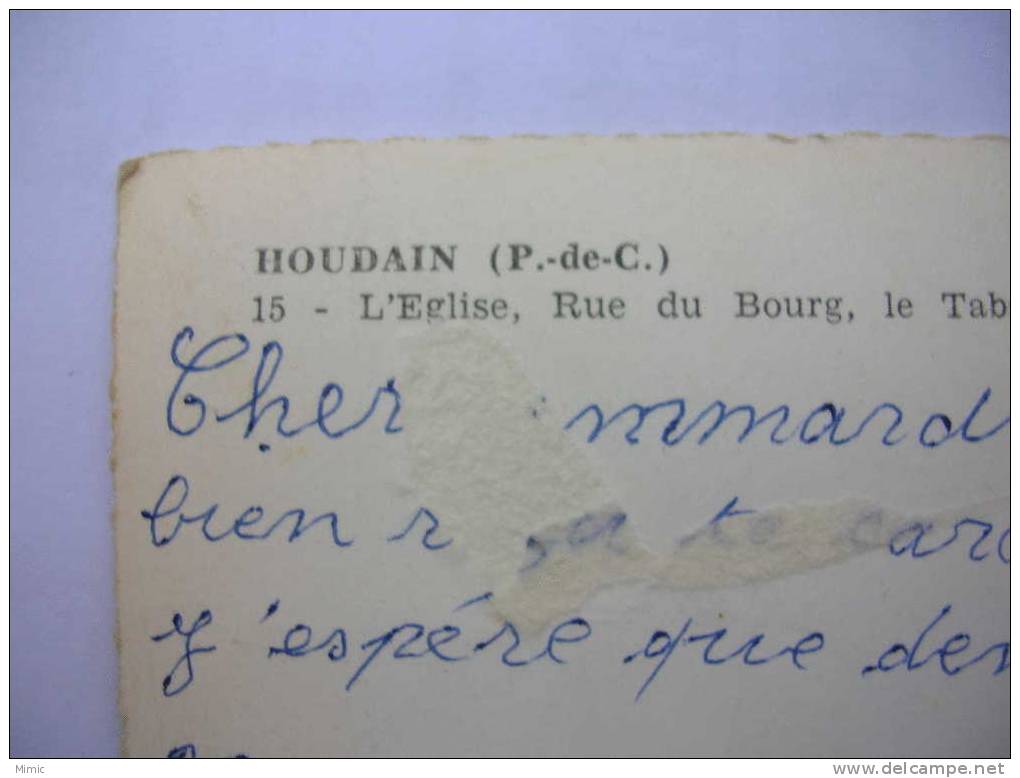 HOUDAIN (P.-de-C.)
15 - L'Eglise, Rue du Bourg, le Tab
Cher mmard
bien r a te car
j'espére que den
Mimic
www.delcampe.net